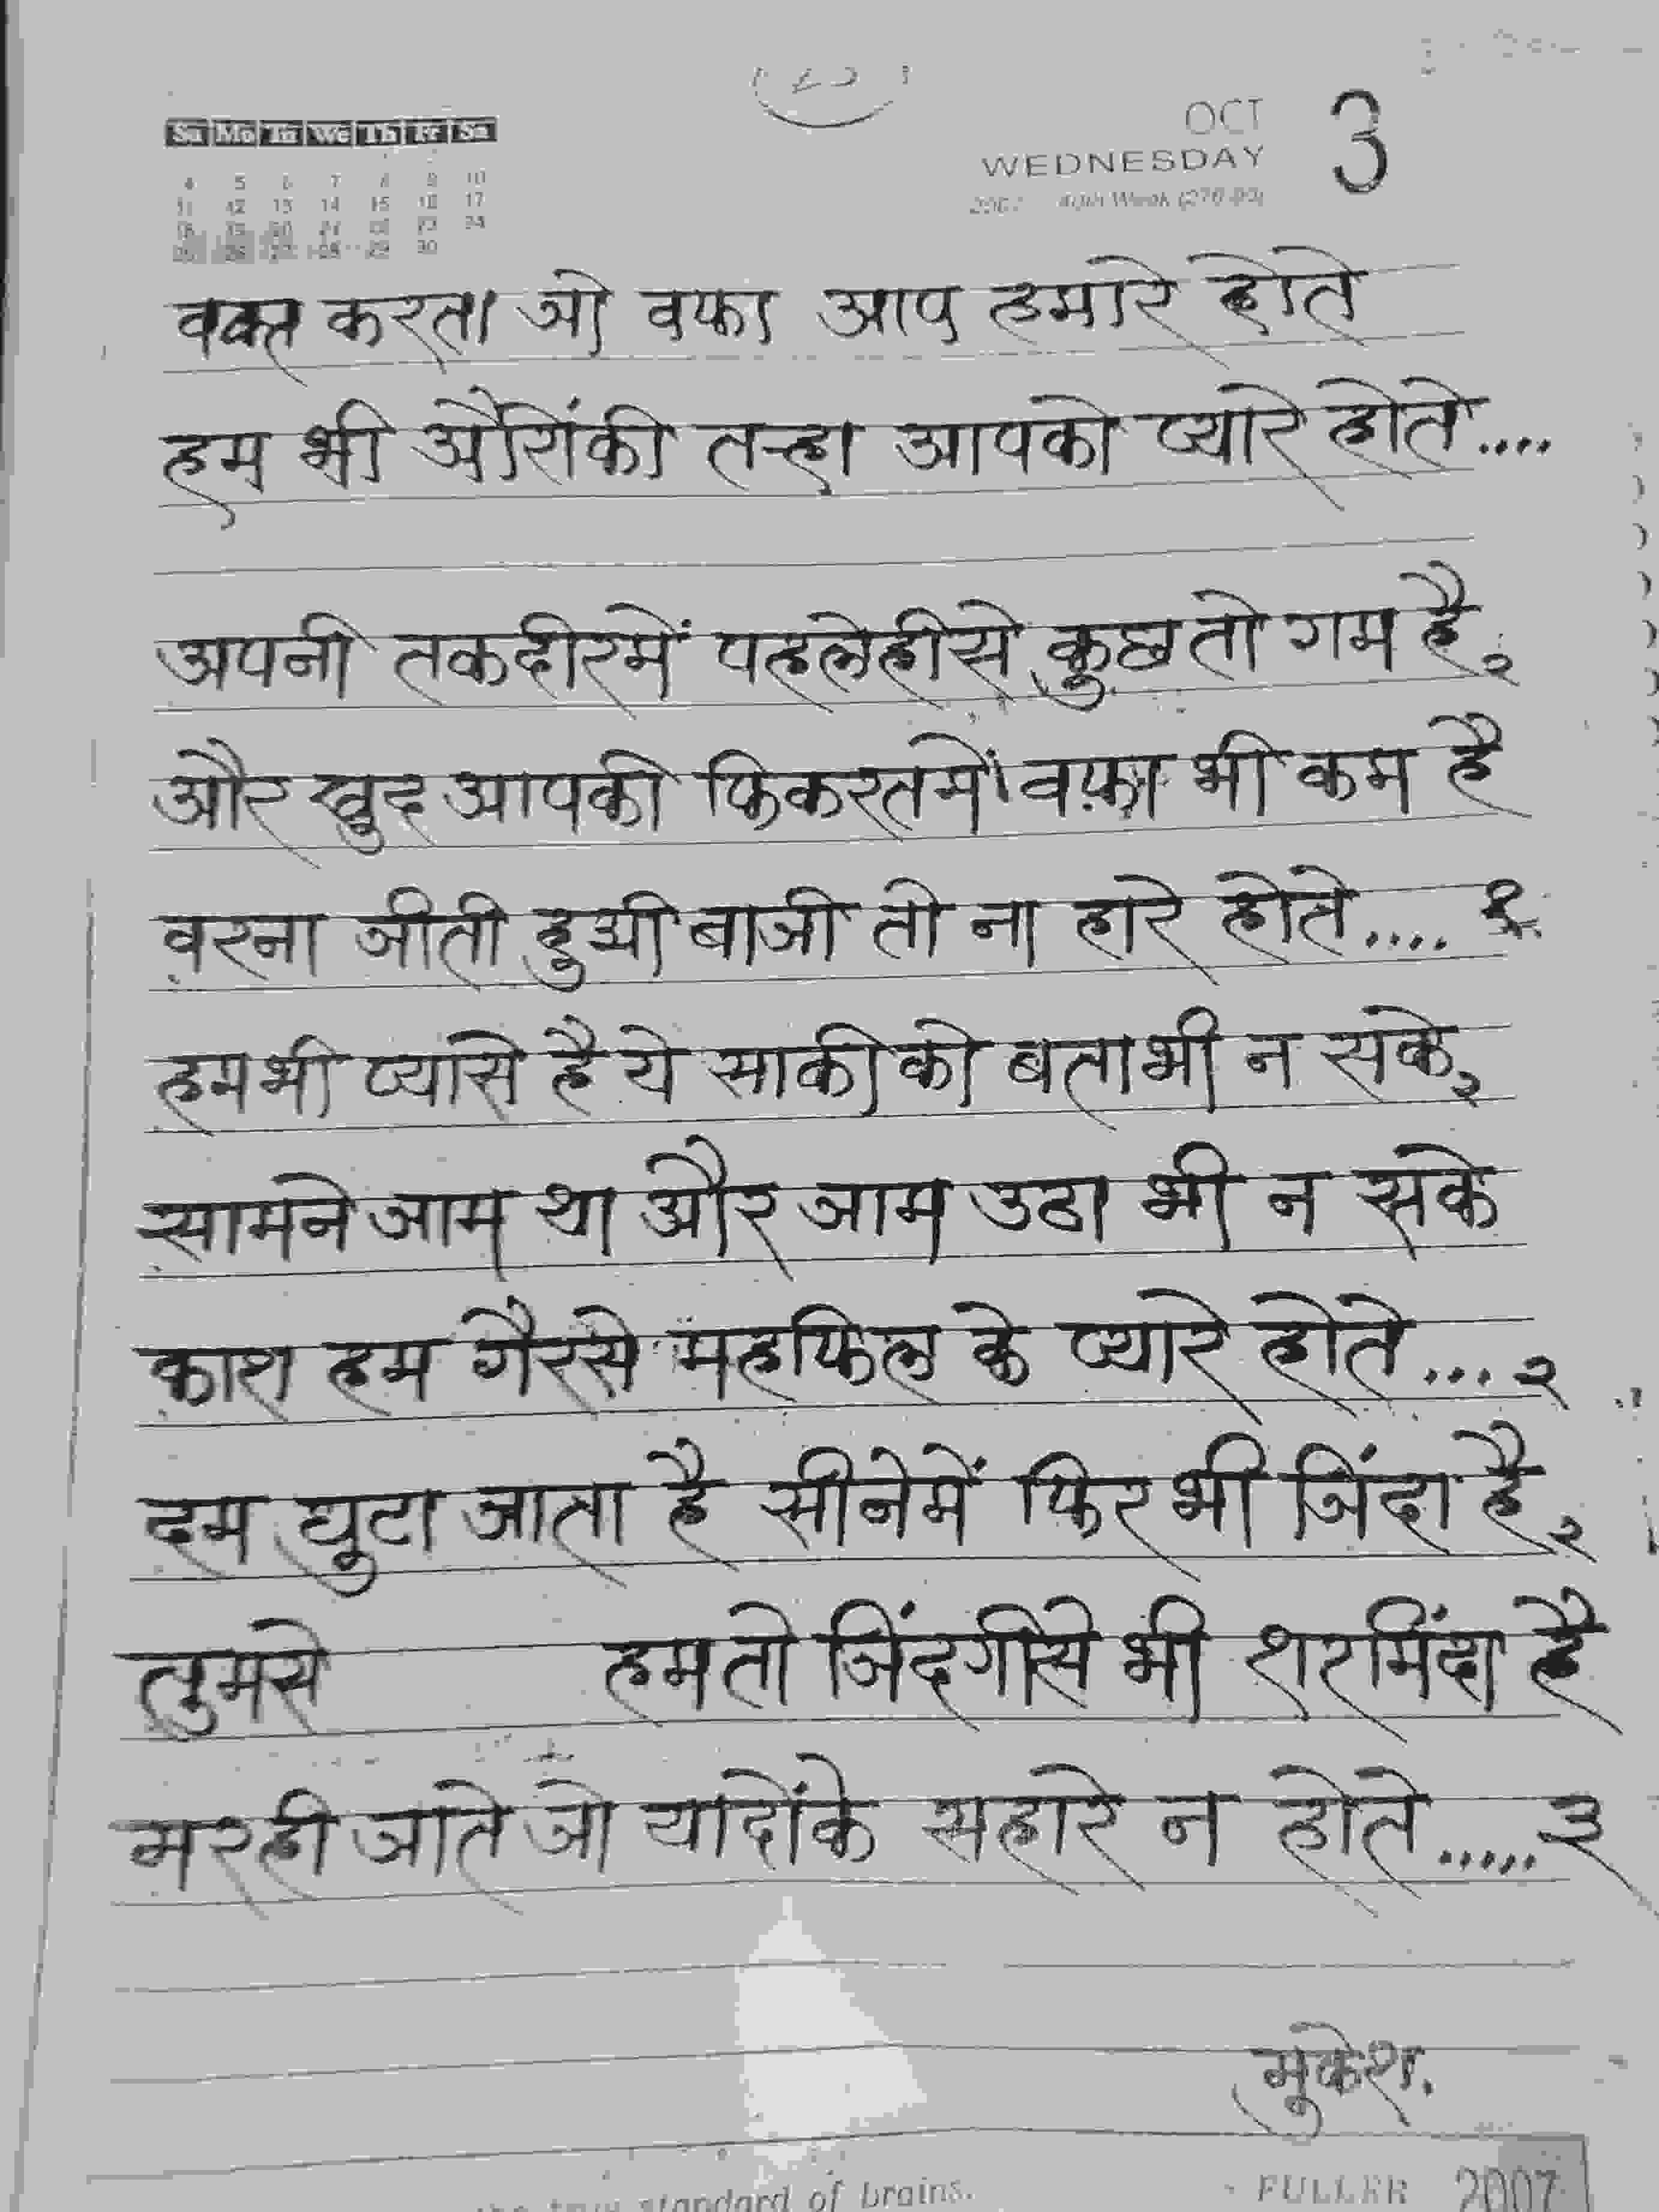 Su Mo Tu We Th Fr Sa
4 5 6 7 8 9 10
11 12 13 14 15 16 17
OCT 3
WEDNESDAY
2007 40th Week
वक्त करता जो वफा आप हमारे होते
हम भी औरोंकी तऱ्हा आपको प्यारे होते....
अपनी तकदीरमें पहलेहीसे कुछ तो गम है २
और खुद आपकी फिकरतमें वफ़ा भी कम है
वरना जीती हुअी बाजी तो ना हारे होते.... १
हमभी प्यासे है ये साकी को बताभी न सके २
सामने जाम था और जाम उठा भी न सके
काश हम गैरसे महफिल के प्यारे होते... २
दम घुटा जाता है सीनेमें फिर भी जिंदा है २
तुमसे हम तो जिंदगीसे भी शरमिंदा है
मरही जाते जो यादोंके सहारे न होते..... ३
मुकेश.
standard of brains.
- FULLER 2007